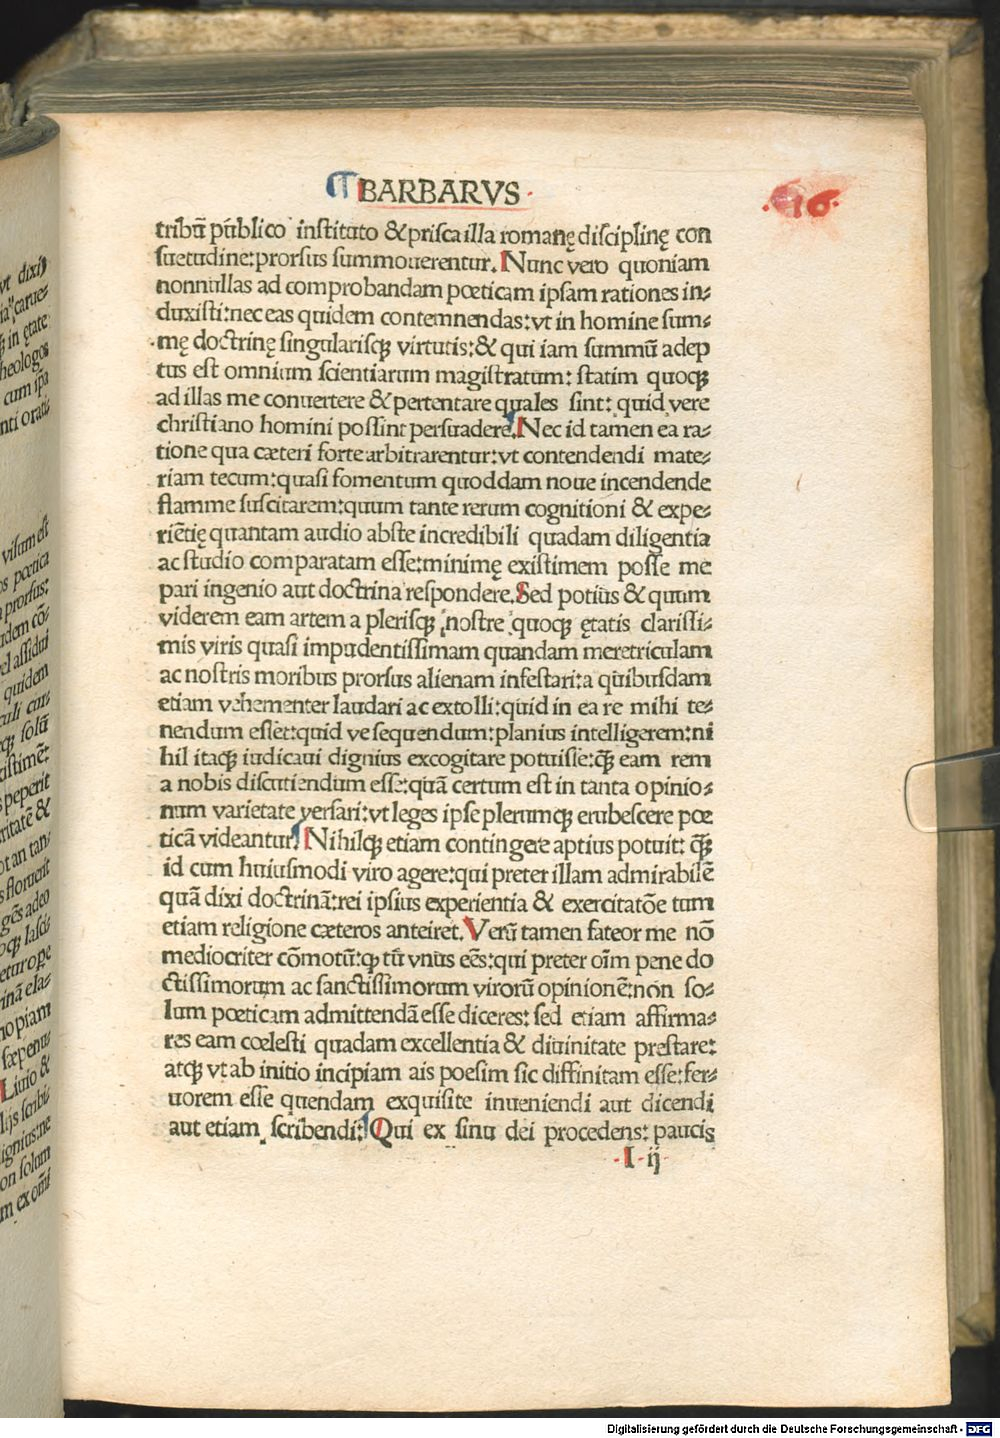 BARBARVS
16
tribū público instituto & prisca illa romanę disciplinę con
suetudine: prorsus summouerentur. Nunc vero quoniam
nonnullas ad comprobandam pœticam ipsam rationes in⸗
duxisti: nec eas quidem contemnendas: vt in homine sum⸗
mę doctrinę singularisqȝ virtutis: & qui iam summū adep
tus est omnium scientiarum magistratum: statim quoqȝ
ad illas me conuertere & pertentare quales sint: quid vere
christiano homini possint persuadere. Nec id tamen ea ra⸗
tione qua cæteri forte arbitrarentur: vt contendendi mate⸗
riam tecum: quasi fomentum quoddam noue incendende
flamme suscitarem: quum tante rerum cognitioni & expe⸗
riētię quantam audio abste incredibili quadam diligentia
ac studio comparatam esse: minimę existimem posse me
pari ingenio aut doctrina respondere. Sed potius & quum
viderem eam artem a plerisqȝ nostre quoqȝ ętatis clarissi⸗
mis viris quasi impudentissimam quandam meretriculam
ac nostris moribus prorsus alienam infestari: a quibusdam
etiam vehementer laudari ac extolli: quid in ea re mihi te⸗
nendum esset: quid ve sequendum: planius intelligerem: ni
hil itaqȝ iudicaui dignius excogitare potuisse: qȝ̄ eam rem
a nobis discutiendum esse: quā certum est in tanta opinio⸗
num varietate versari: vt leges ipse plerumqȝ erubescere pœ
ticā videantur. Nihilqȝ etiam contingere aptius potuit: qȝ̄
id cum huiusmodi viro agere: qui preter illam admirabilē
quā dixi doctrinā: rei ipsius experientia & exercitatōe tum
etiam religione cæteros anteiret. Verū tamen fateor me nō
mediocriter cōmotū: ꝙ tū vnus eēs: qui preter oīm pene do
ctissimorum ac sanctissimorum virorū opinionē: non so⸗
lum pœticam admittendā esse diceres: sed etiam affirma⸗
res eam cœlesti quadam excellentia & diuinitate prestare:
atqȝ vt ab initio incipiam ais poesim sic diffinitam esse: fer⸗
uorem esse quendam exquisite inueniendi aut dicendi
aut etiam scribendi: Qui ex sinu dei procedens: paucis
I ij
vt dixi
in ętate
heologos
cum ipā
nti orati
visum est
os pœtica
a prorsus:
idem cō⸗
vel assidui
quidem
culi cur⸗
qȝ solū
xistimē:
s peperit
ritatē &
ot an tan⸗
s floruerit
gēs adeo
oqȝ lasci⸗
etur ope
rinā elas⸗
no piam
sæpenu⸗
Liuio &
lijs scribi⸗
ignius: ne
on solum
m ex omī
Digitalisierung gefördert durch die Deutsche Forschungsgemeinschaft - DFG